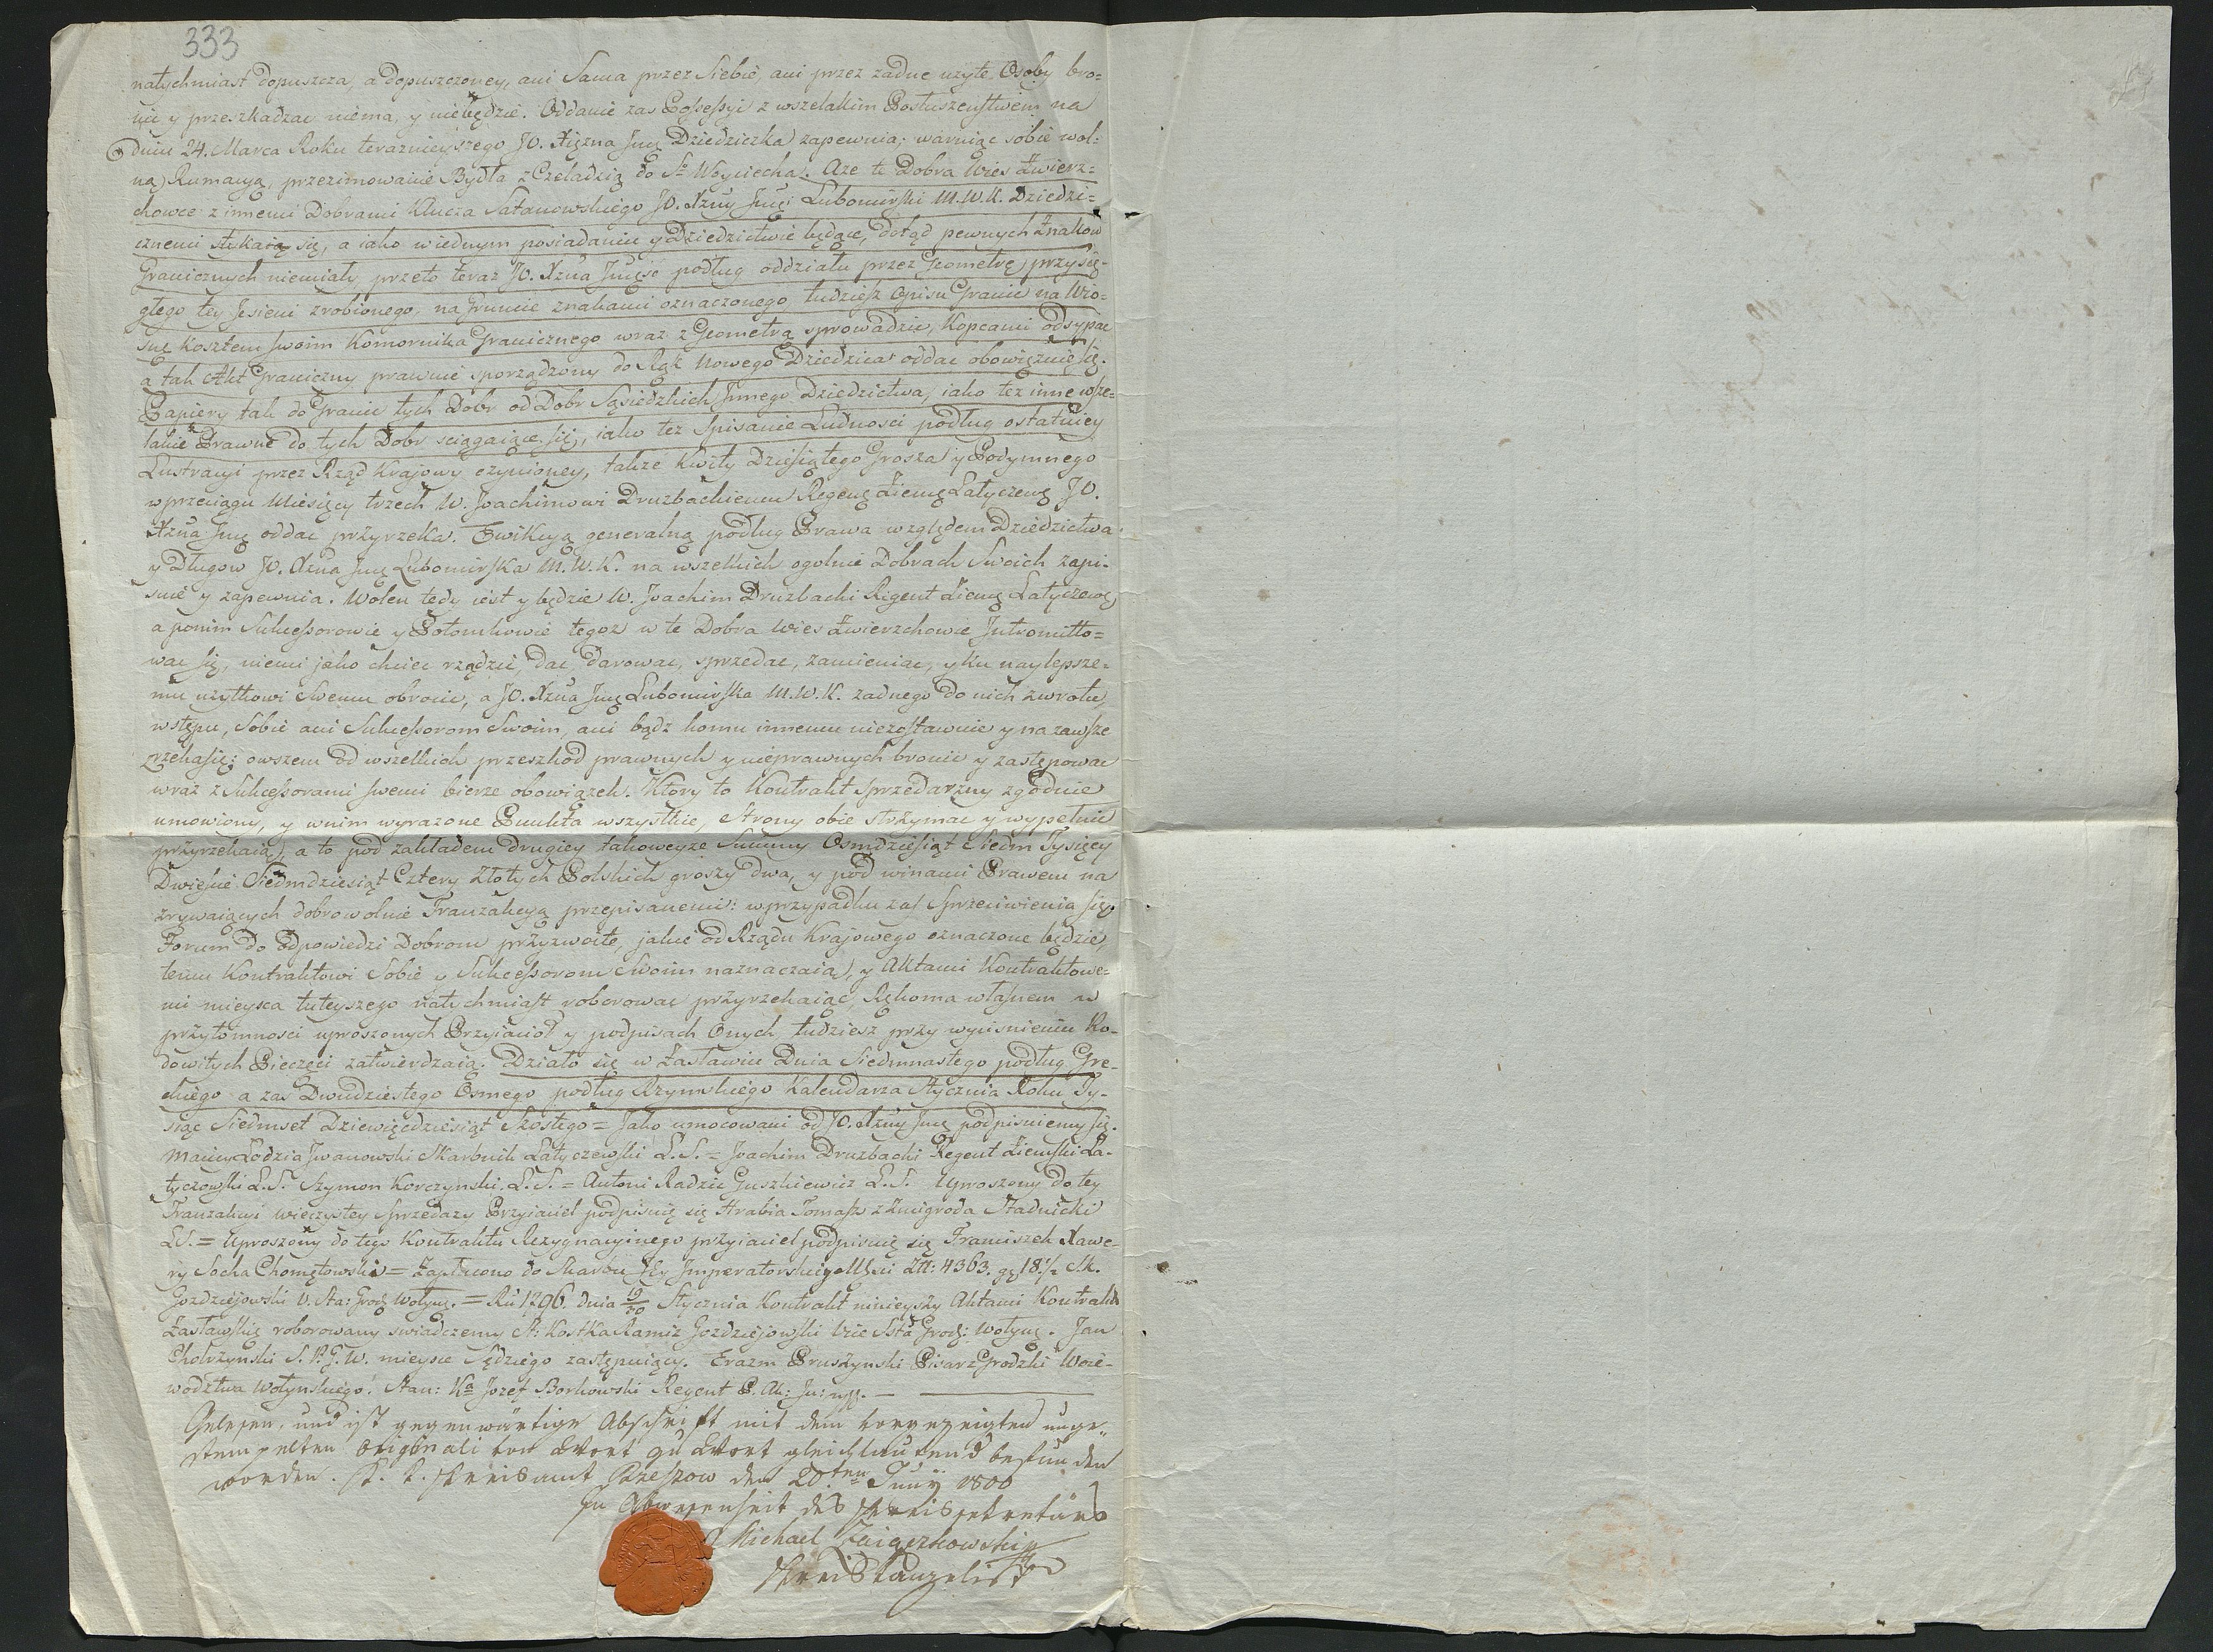 333
natychmiast dopuszcza, a dopuszczoney, ani Sama przez Siebie, ani przez zadne uzyte Osoby bro=
nic y przeszkadzac niema, y niebędzie. Oddanie zas Possessyi z wszelakim Posłuszenstwem na
dniu 24. Marca Roku terazniejszego JO. Xięzna Jmę Dziedziczka zapewnia; waruiąc sobie wol=
ną Rumacyą, przezimowanie Bydła z Czeladzią do So Woyciecha. Aze te Dobra Wies Zwierz=
chowce z innemi Dobrami Klucza Satanowskiego JO. Xzny Jmęi Lubomirski M.W.K. Dziedzi=
cznemi stykaią się, a iako wiednym posiadaniu y Dziedzictwie będące, dotąd pewnych Znakow
Granicznych niemiały, przeto teraz JO. Xzna Jmęść podług oddziału przez Geometrę przysię=
głego tey Jesieni zrobionego, na Gruncie znakami oznaczonego, tudziesz Opisu Granic na Wio=
snę kosztem swoim Komornika Granicznego wraz z Geometrą sprowadzic, Kopcami odsypac
a tak Akt Graniczny prawnie sporządzony do Rąk Nowego Dziedzica oddac obowięznie się.
Papiery tak do Granic tych Dobr od Dobr Sąsiedzkich Jnnego Dziedzictwa, iako tez inne wsze=
lakie Prawne do tych Dobr sciągaiące się, iako tez Spisanie Ludnosci podług ostatniey
Lustracyi przez Rząd Krajowy czynioney, takze Kwity Dziesiątego Grosza y Podymnego
w przeciągu Miesięcy trzech W. Joachimowi Druzbackiemu Regenę Ziemę Latyczewę JO.
Xzna Jmę oddac przyrzeka. Ewikcyą generalną podług Prawa względem Dziedzictwa
y Długow JO. Xzna Jmę Lubomirska M.W.K. na wszelkich ogolnie Dobrach Swoich zapi=
suie y zapewnia. Wolen tedy iest y będzie W. Joachim Druzbacki Regent Ziemę Latyczewę
a ponim Sukcessorowie y Potomkowie tegoz w te Dobra Wies Zwierzchowie Intromitto=
wac się, niemi jako chciec rządzic, dac, darowac, sprzedac, zamieniac, y ku naylepsze=
mu uzytkowi Swemu obrocic, a JO. Xzna Jmę Lubomirska M.W.K. zadnego do nich zwrotu,
wstępu, Sobie ani Sukcessorom Swoim, ani bądz komu innemu niezostawuie y na zawsze
zrzeka się; owszem od wszelkich przeszkod prawnych y nieprawnych bronic y zastępowac
wraz z Sukcessorami swemi bierze obowiązek. Ktory to Kontrakt Sprzedarzny zgodnie
umowiony, y wnim wyrazone Punkta wszystkie, Strony obie strzymac y wypełnic
przyrzekaią, a to pod zakładem drugiey takoweyze Summy Osmdziesiąt Siedm Tysięcy
Dwiescie Siedmdziesiąt Cztery Złotych Polskich groszy dwa, y pod winami Prawem na
zrywaiących dobrowolnie Tranzakcyą przepisanemi: w przypadku zas Sprzeciwienia się
Forum do odpowiedzi Dobrom przyzwoite, jakie od Rządu Krajowego oznaczone będzie,
temu Kontraktowi Sobie y Sukcessorom Swoim naznaczaią, y Aktami Kontraktowe=
mi mieysca tuteyszego natychmiast roborowac przyrzekaiąc, Rękoma własnem w
przytomnosci uproszonych Przyiacioł y podpisach Onych tudziesz przy wycisnieniu Ro=
dowitych Pieczęci zatwierdzaią. Działo się w Zasławiu Dnia Siedmnastego podług Gre=
ckiego a zas Dwudziestego Osmego podług Rzymskiego Kalendarza Stycznia Roku Ty=
siąc Siedmset Dziewięcdziesiąt Szostego = Jako umocowani od JO. Xzny Jmę podpisuiemy się.
Maciey Łodzia Jwanowski Skarbnik Latyczewski L.S. = Joachim Druzbacki Regent Ziemski La=
tyczowski L.S. Szymon Korczynski L.S. = Antoni Radzic Guszkiewicz L.S. Uproszony do tey
Tranzakcyi wieczystey Sprzedazy Przyiaciel podpisuię się Hrabia Tomasz z Zmigroda Stadnicki
LS. = Uproszony do tego Kontraktu Rezygnacyinego przyiaciel podpisuię się Franciszek Xawe=
ry Socha Chomętowski = Zapłacono do Skarbu Jey Imperatorskiey Mści Złł: 4363. gę 18 1/2 S.K.
Gozdziejowski V. Sta: Grod Wołynę. = Ru 1796. dnia 19/30 Stycznia Kontrakt ninieyszy Aktami Kontrakt
Zasławskię roborowany swiadczemy S: Kostka Ramiz Gozdziejowski Vice Sstą Grodz: Wołynę. Jan
Chobrzynski S.P.G.W. mieysce Sędziego zastępuiący. Erazm Pruszynski Pisarz Grodzki Woie=
wodztwa Wołynskiego. Stan: Ka Jozef Borkowski Regent P. Ak: Ju: mpp. —
Gelesen und ist gegenwärtige Abschrift mit dem vorgezeigten unge„
stempelten Originali von Wort zu Wort gleichlautend befunden
worden. K. K. Kreisamt Rzeszow den 20ten Juny 1800
In Abwesenheit des Kreissekretärs
Michael Zaigzkowski
Kreiskanzelist